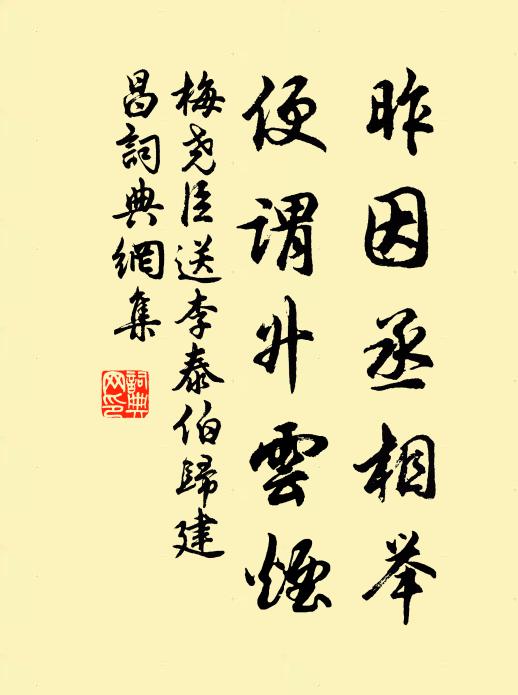 昨因丞相举
便谓升雲煙
梅尧臣送李泰伯歸建
昌詞典網集
詞典
网印